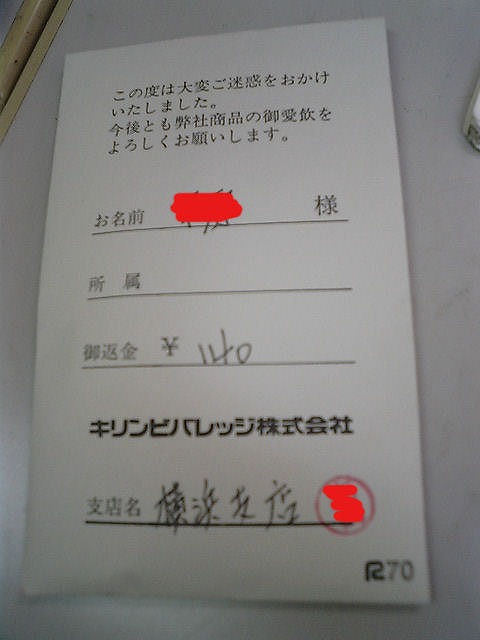 この度は大変ご迷惑をおかけ
いたしました。
今後とも弊社商品の御愛飲を
よろしくお願いします。
お名前 様
所属
御返金 ¥ 140
キリンビバレッジ株式会社
支店名 横浜支店
R70